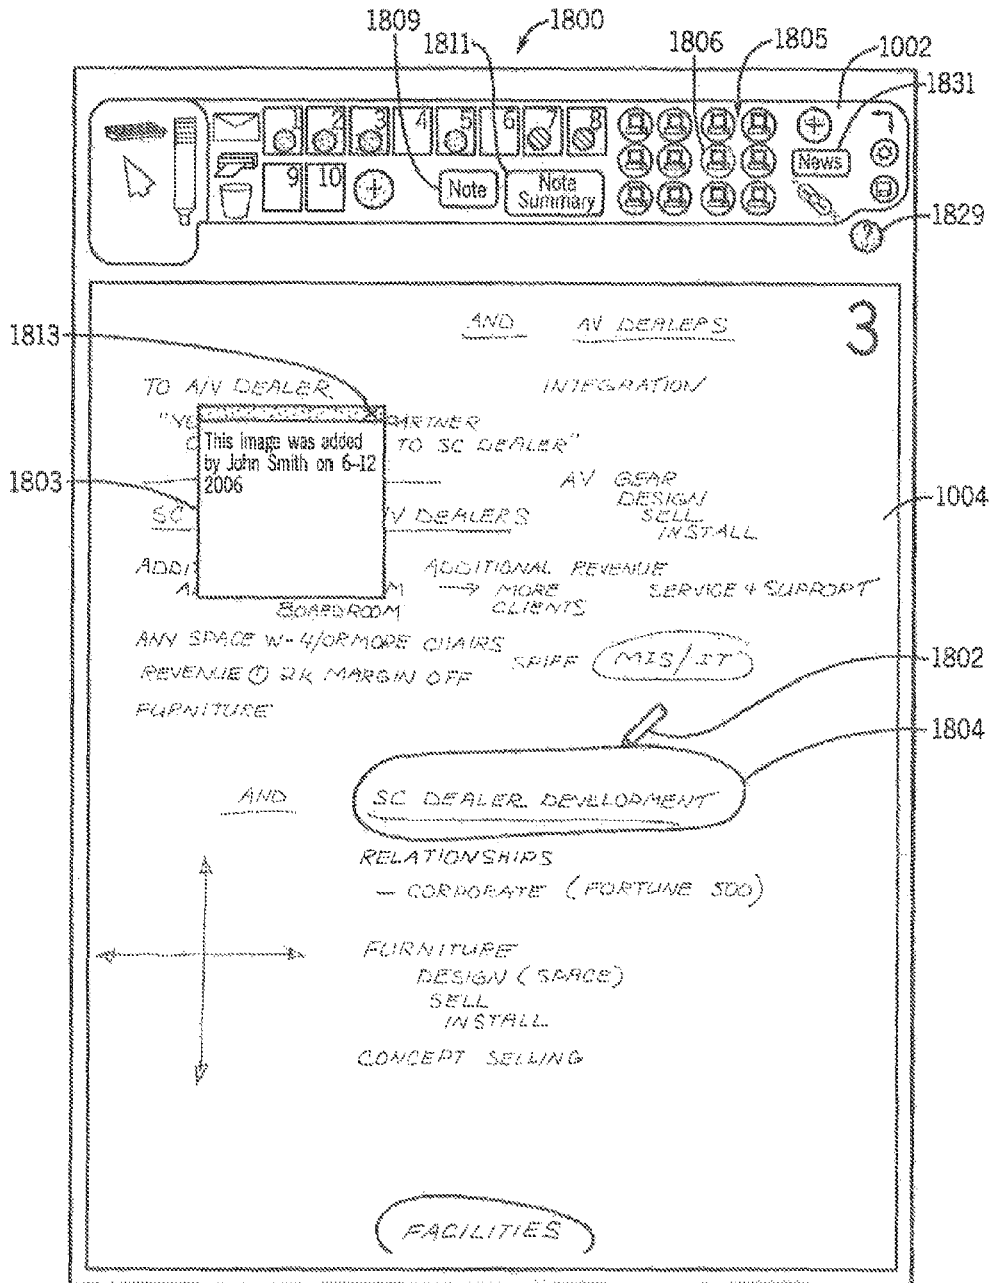 1809
1800
1811
1806
1805
1002
1831
1 2 3 4 5 6 7 8
News
9 10
Note
Note Summary
1829
?
3
AND AV DEALERS
1813
TO A/V DEALER
INTEGRATION
"YO PARTNER
TO SC DEALER"
This image was added
by John Smith on 6-12
2006
1803
AV GEAR
DESIGN
SELL
INSTALL
1004
SC /V DEALERS
ADDI ADDITIONAL REVENUE
A M → MORE
CLIENTS
SERVICE + SUPPORT
BOARDROOM
ANY SPACE W-4/OR MORE CHAIRS
SPIFF MIS/IT
1802
REVENUE 2K MARGIN OFF
FURNITURE
1804
AND SC DEALER DEVELOPMENT
RELATIONSHIPS
- CORPORATE (FORTUNE 500)
FURNITURE
DESIGN (SPACE)
SELL
INSTALL
CONCEPT SELLING
FACILITIES